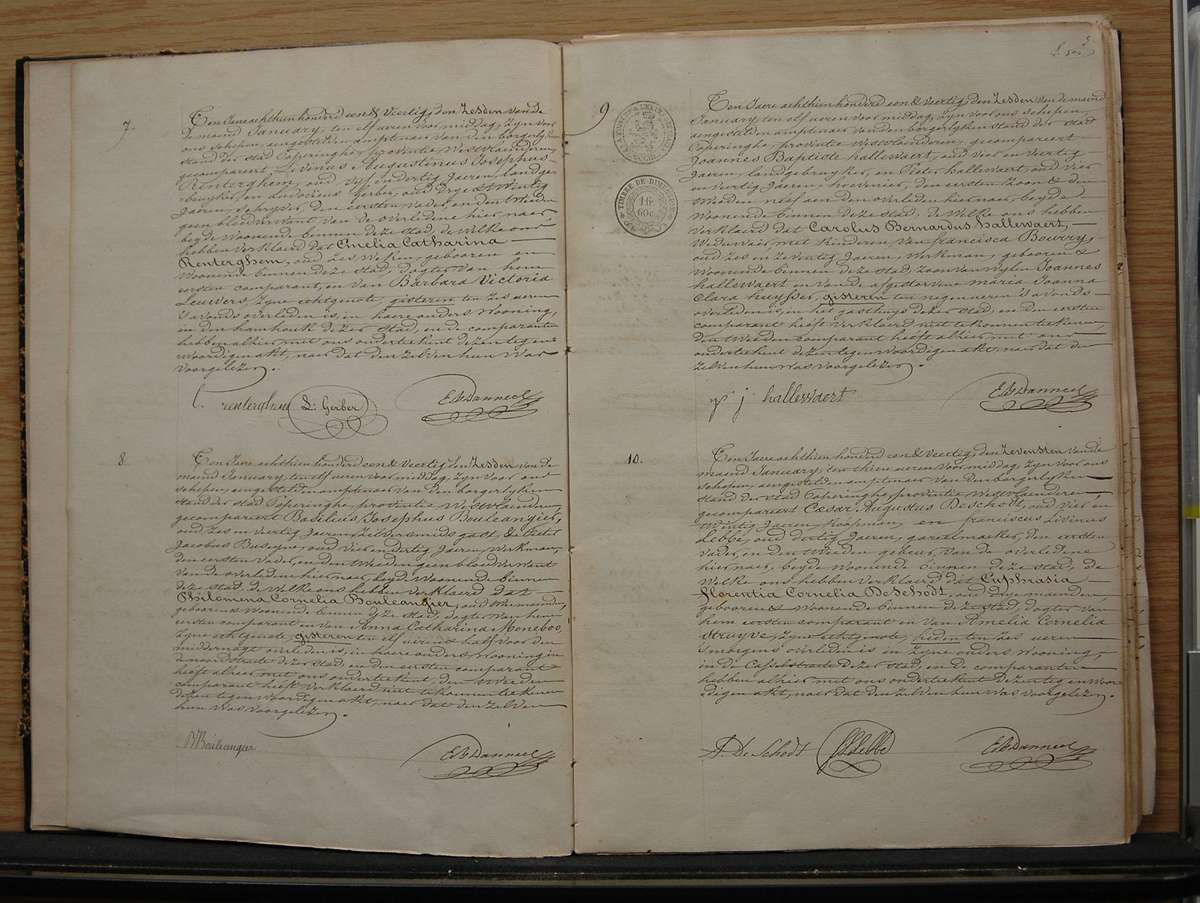 7.
Ten Jaere achthien honderd een & Veertig, den Zesden van de
maend January, ten elf ueren voormiddag, zyn voor
ons schepen, aengestelden amptenaer van den borgerlyken
stand der stad Poperinghe, provintie Westvlaenderen,
gecompareert Livinus Augustinus Josephus
Renterghem, oud vyf en dertig Jaeren, landge-
bruyker, en Ludovicus Gerber, oud dry en Veertig
Jaeren, den eersten vader, en den tweeden
geen bloedverwant van de overledene hier naer,
beyde Woonende binnen deze stad, de Welke ons
hebben verklaerd dat Emelia Catharina
Renterghem, oud zes Weken, gebooren en
Woonende binnen deze stad, dogter van hem
eersten comparant, en van Barbara Victoria
Leuwers, zyne echtgenote, gisteren ten zes ueren
s'avonds overleden is, in haere ouders Wooning,
in den hamhoek dezer stad, en de comparanten
hebben alhier met ons onderteekent dezen tegen-
woordigen akt, naer dat den zelven hun Was
voorgelezen.
L. renterghem L: Gerber
8.
Ten Jaere achthien honderd een & Veertig, den Zesden van de
maend January, ten elf ueren voormiddag, zyn voor ons
schepen, aengestelden amptenaer van den borgerlyken
stand der stad Poperinghe, provintie Westvlaenderen,
gecompareert Basilius Josephus Bouleangier,
oud zes en veertig Jaeren, zelversmids gast, & Pieter
Jacobus Buseyne, oud vier en dertig Jaeren, Werkman,
den eersten vader, en den tweeden geen bloedverwant
van de overleden hier naer, beyde Woonende binnen
deze stad, de Welke ons hebben verklaerd dat
Philomena Cornelia Bouleangier, oud
gebooren & Woonende binnen deze stad, dogter van hem
eersten comparant en van Anna Catharina
zyne echtgenote, gisteren ten elf ueren & half voor den
middernagt overleden is, in haere ouders Wooning in
de noordstraete dezer stad, en den eersten comparant
heeft alhier met ons onderteekent, den tweeden
comparant heeft verklaerd niet te konnen teekenen
dezen tegenwoordigen akt, naer dat den zelven
hun Was voorgelezen.
Bouleangier
9
TIMBRE DE DIMENSION
1 fr.
60c.
Ten Jaere achthien honderd een & Veertig, den Zesden van de maend
January, ten elf ueren voormiddag, zyn voor ons schepen
aengestelden amptenaer van den borgerlyken stand der stad
Poperinghe, provintie Westvlaenderen, gecompareert
Joannes Baptiste hallewaert, oud vier en Veertig
Jaeren, landgebruyker, en Pieter hallewaert, oud vier
en veertig Jaeren, hovenier, den eersten zoon & den
tweeden neef aen den overleden hier naer, beyde
Woonende binnen deze stad, de Welke ons hebben
verklaerd dat Carolus Bernardus hallewaert,
Weduwaer met kinderen van francisca Bouvry,
oud zes en zeventig Jaeren, Werkman, gebooren &
Woonende binnen deze stad, zoon van wylen Joannes
hallewaert en van de afgestorvene maria Joanna
Clara huysser, gisteren ten negen ueren s'avonds
overleden is, in het gasthuys dezer stad, en den eersten
comparant heeft verklaerd niet te konnen teekenen,
den tweeden comparant heeft alhier met ons
onderteekent dezen tegenwoordigen akt, naer dat den
zelven hun Was voorgelezen.
p: j: hallewaert
10.
Ten Jaere achthien honderd een & Veertig, den Zevensten van de
maend January, ten thien ueren voormiddag, zyn voor ons
schepen, aengestelden amptenaer van den borgerlyken
stand der stad Poperinghe, provintie Westvlaenderen,
gecompareert Cæsar Augustus Deschodt, oud vier en
twintig Jaeren, koopman, en franciscus Livinus
Lebbe, oud dertig Jaeren, gareelmaeker, den eersten
vader, en den tweeden gebuer van de overledene
hier naer, beyde Woonende binnen deze stad, de
Welke ons hebben verklaerd dat Euphrasia
florentia Cornelia DeSchodt, oud dry maenden,
gebooren & Woonende binnen deze stad, dogter van
hem eersten comparant en van Amelia Cornelia
Struyve, zyne echtgenote, heden ten zes ueren
s'morgens overleden is in zyne ouders Wooning,
in de Casselstraete dezer stad, en de comparanten
hebben alhier met ons onderteekent dezen tegenwoor-
digen akt, naer dat den zelven hun Was voorgelezen.
De Schodt Lebbe